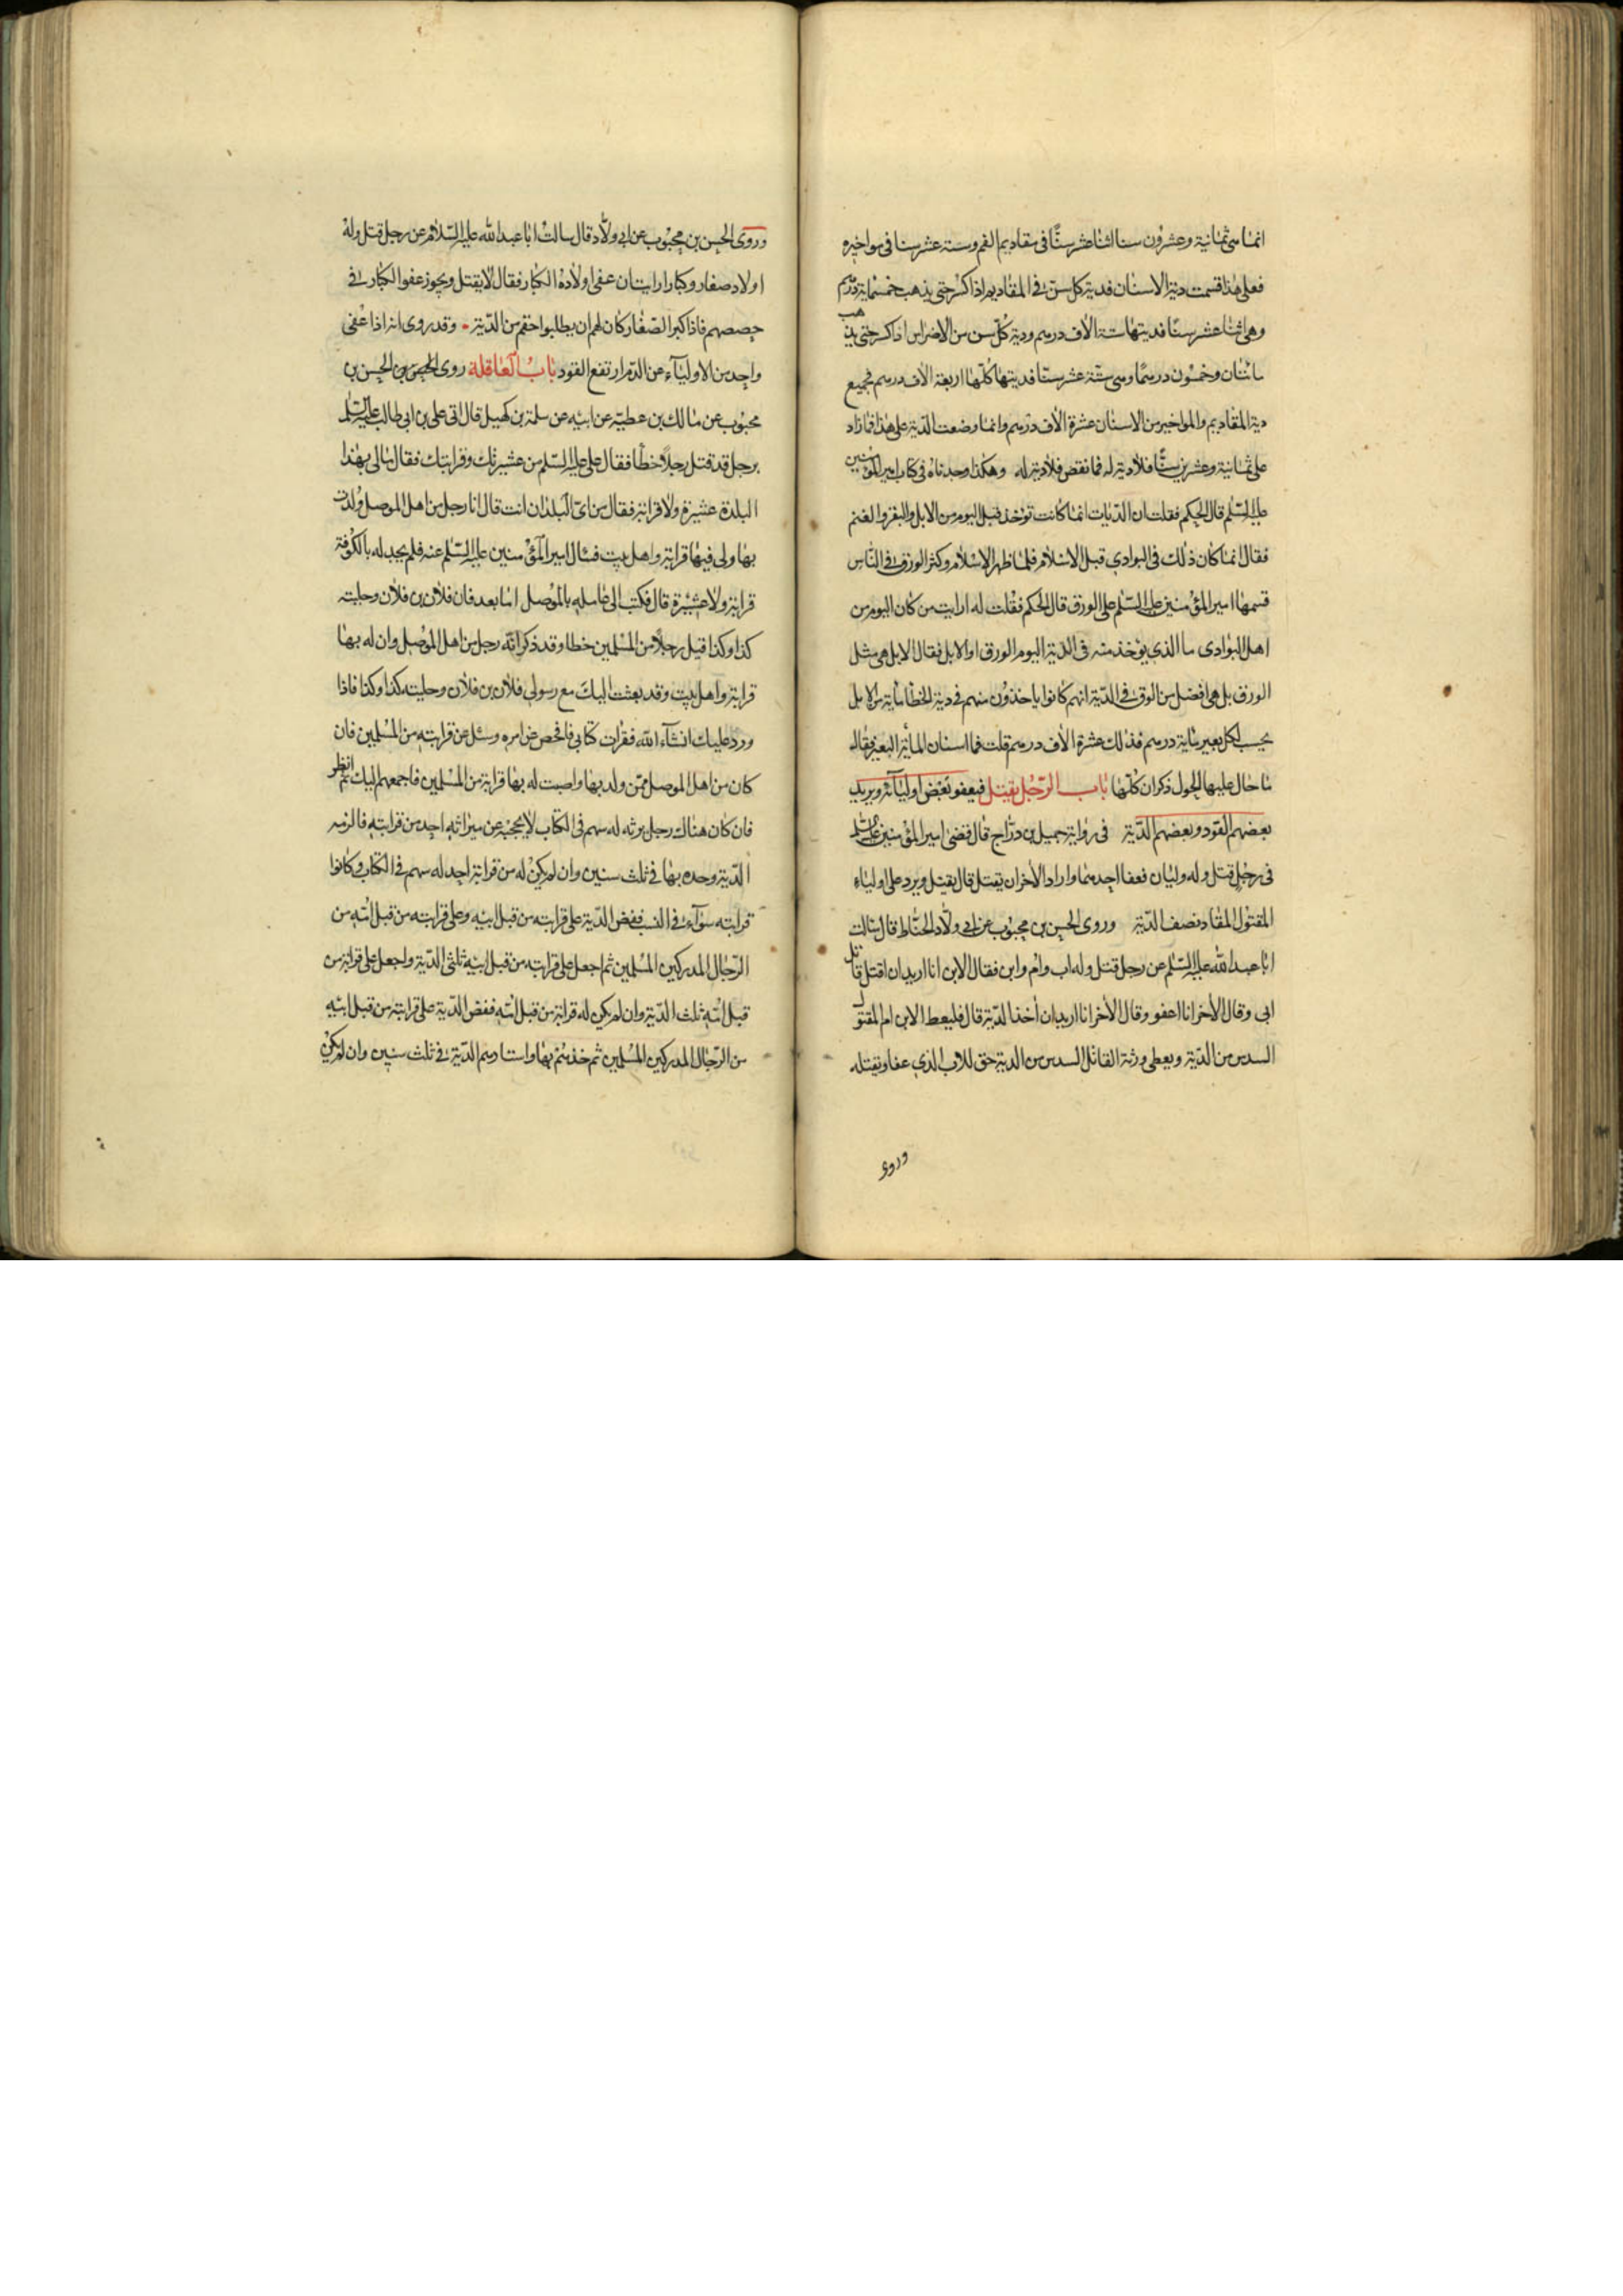 انما هی ثمانیة وعشرون سنا اثنا عشر سنًّا فی مقادیم الفم وستة عشر سنا فی مواخیره
فعلی هذا قسمت دیة الاسنان فدیة کل سن فی المقادیم اذا کسر حتی یذهب خمسمایة درهم
وهی اثنا عشر سنًا فدیتها ستة الاف درهم ودیة کُلّ سن من الاضراس اذا کسر حتی یذهب
مائتان وخمسون درهمًا وهی ستّة عشر سنّا فدیتها کلّها اربعة الاف درهم فجمیع
دیة المقادیم والمواخیر من الاسنان عشرة الاف درهم وانما وضعت الدّیة علی هذا فما زاد
علی ثمانیة وعشرین سنًّا فلا دیة له فما نقص فلا دیة له وهکذا وجدناه فی کتاب امیر المؤمنین
علیه السّلم قال الحکم فقلت ان الدّیات انما کانت توخذ قبل الیوم من الابل والبقر والغنم
فقال انما کان ذلك فی البوادی قبل الاسلام فلما ظهر الاسلام وکثر الورق فی النّاس
قسمها امیر المؤمنین علیه السّلم علی الورق قال الحکم فقلت له ارایت من کان الیوم من
اهل البوادی ما الذی یؤخذ منه فی الدّیة الیوم الورق او الابل فقال الابل هی مثل
الورق بل هی افضل من الورق فی الدّیة انهم کانوا یاخذون منهم فی دیة الخطا مایة من الابل
یحسب لکل بعیر مایة درهم فذلك عشرة الاف درهم قلت فما اسنان المأیة البعیر فقال
ما حال علیها الحول ذکران کلّها باب الرّجُل یقتل فیعفو بَعْض اولیآئه ویرید
بعضهم القود وبعضهم الدّیة فی روایة جمیل بن درّاج قال قضی امیر المؤمنین علیه السلم
فی رجل قتل وله ولیان فعفا احدهما واراد الاخر ان یقتل قال یقتل ویرد علی اولیاء
المقتول المقاد نصف الدّیة وروی الحسن بن محبوب عن ابی ولّاد الحنّاط قال سالت
ابا عبد الله علیه السّلم عن رجل قتل وله اب وام وابن فقال الابن انا ارید ان اقتل قاتل
ابی وقال الاخر انا اعفو وقال الاخر انا ارید ان اخذ الدّیة قال فلیعط الابن ام المقتول
السدس من الدّیة ویعطی ورثة القاتل السدس من الدیة حق للاب الذی عفا ویقتله
وروی
وروی الحسن بن محبوب عن ابی ولّاد قال سالت ابا عبد الله علیه السّلام عن رجل قتل وله
اولاد صغار وکبار ارایت ان عفی اولاده الکبار فقال لا یقتل ویجوز عفو الکبار فی
حصصهم فاذا کبر الصّغار کان لهم ان یطلبوا حقهم من الدّیة وقد روی انه اذا عُفی
واحد من الاولیآء عن الدّم ارتفع القود بَابُ الْعَاقلة روی الحسن بن
محبوب عن مالك بن عطیّه عن ابیه عن سلمة بن کهیل قال اتی علی بن ابی طالب علیه السّلم
برجل قد قتل رجلاً خطأ فقال علی علیه السّلم من عشیرتك وقرابتك فقال مالی بهذا
البلدة عشیرة ولا قرابة فقال من ایّ البلدان انت قال انا رجل من اهل الموصل وُلدت
بها ولی فیها قرابة واهل بیت فسٔال امیر المؤمنین علیه السّلم عنه فلم یجد له بالکوفة
قرابة ولا عشیرة قال فکتب الی عامله بالموصل اما بعد فان فلان بن فلان وحلیته
کذا وکذا قتل رجلاً من المسلمین خطا وقد ذکر انّه رجل من اهل الموصل وان له بها
قرابة واهل بیت وقد بعثت الیك مع رسولی فلان بن فلان وحلیته کذا وکذا فاذا
ورد علیك انشآء الله فقرات کتابی فافحص عن امره وسئل عن قرابته من المسلمین فان
کان من اهل الموصل ممّن ولد بها واصبت له بها قرابة من المسلمین فاجمعهم الیك ثم انظر
فان کان هناك رجل یرثه له سهم فی الکتاب لا یحجبه عن میراثه احد من قرابته فالزمه
الدّیة وحده بها فی ثلث سنین وان لم یکن له من قرابة احد له سهم فی الکتاب وکانوا
قرابته سوآء فی النسب ففض الدّیة علی قرابته من قبل ابیه وعلی قرابته من قبل امّه من
الرّجال المدرکین المسْلمین ثم اجعل علی قرابته من قبل ابیه ثلثی الدّیة واجعل علی قرابة من
قبل امّه ثلث الدّیة وان لم یکن له قرابة من قبل امّه ففض الدّیة علی قرابته من قبل ابیه
من الرّجال المدرکین المسْلمین ثم خذهم بها واستادهم الدّیة فی ثلث سنین وان لم یکن